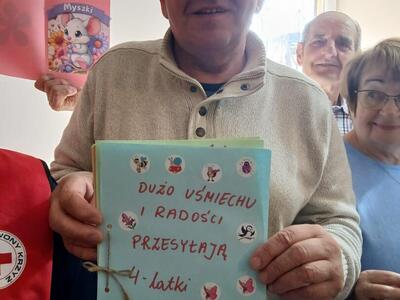 Myszki
DUŻO UŚMIECHU
I RADOŚCI
PRZESYŁAJĄ
4-latki